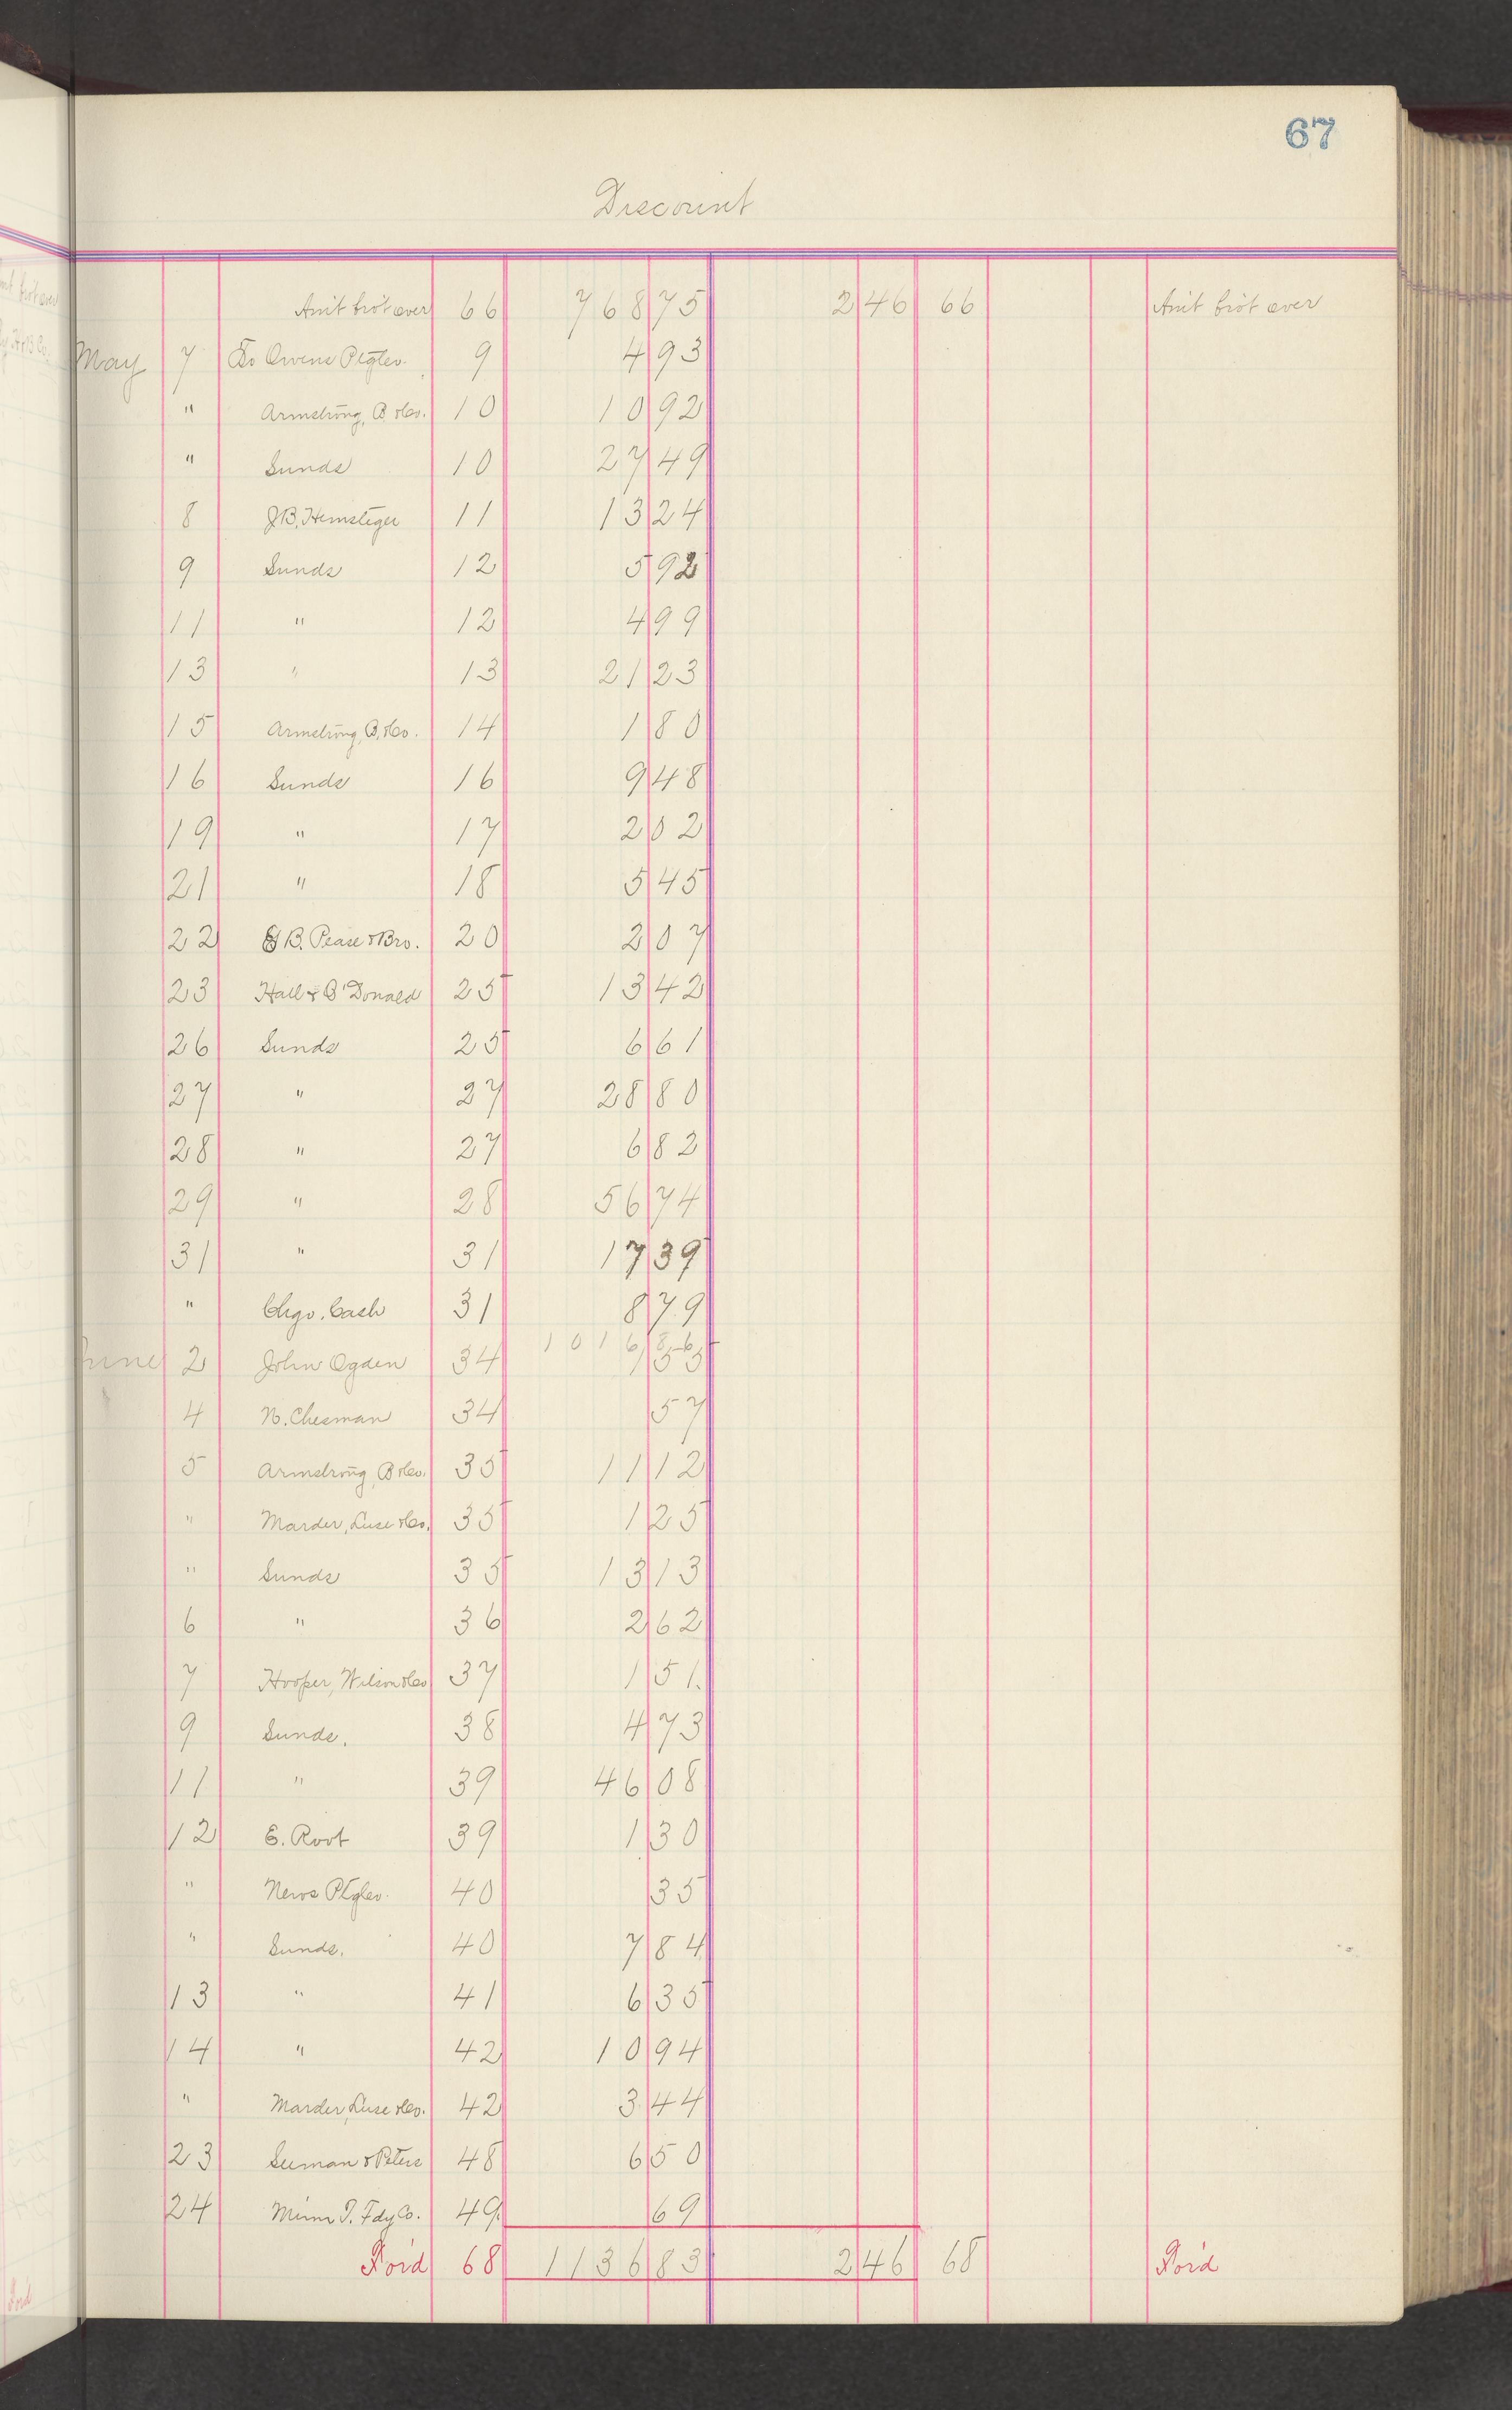 67
Discount
Amt brot over 66 768 75 2 46 66 Amt brot over
May 7 To Owens Ptg Co. 9 4 93
" Armstrong, B. & Co. 10 10 92
" Sunds 10 27 49
8 J.B. Hemsteger 11 13 24
9 Sunds 12 5 92
11 " 12 4 99
13 " 13 21 23
15 Armstrong, B. & Co. 14 1 80
16 Sunds 16 9 48
19 " 17 2 02
21 " 18 5 45
22 B. Pease & Bro. 20 2 07
23 Hall & O'Donald 25 13 42
26 Sunds 25 6 61
27 " 27 28 80
28 " 27 6 82
29 " 28 56 74
31 " 31 17 39
" Chgo. Cash 31 8 79
1016 86
June 2 John Ogden 34 1 55
4 N. Chesman 34 57
5 Armstrong, B & Co. 35 11 12
" Marder, Luse & Co. 35 1 25
" Sunds 35 13 13
6 " 36 2 62
7 Hooper, Wilson & Co 37 1 51
9 Sunds. 38 4 73
11 " 39 46 08
12 E. Root 39 1 30
" News Ptg Co. 40 35
" Sunds. 40 7 84
13 " 41 6 35
14 " 42 10 94
" Marder, Luse & Co. 42 3 44
23 Seeman & Peters 48 6 50
24 Minn T. Fdy Co. 49 69
For'd 68 1136 83 2 46 68 For'd